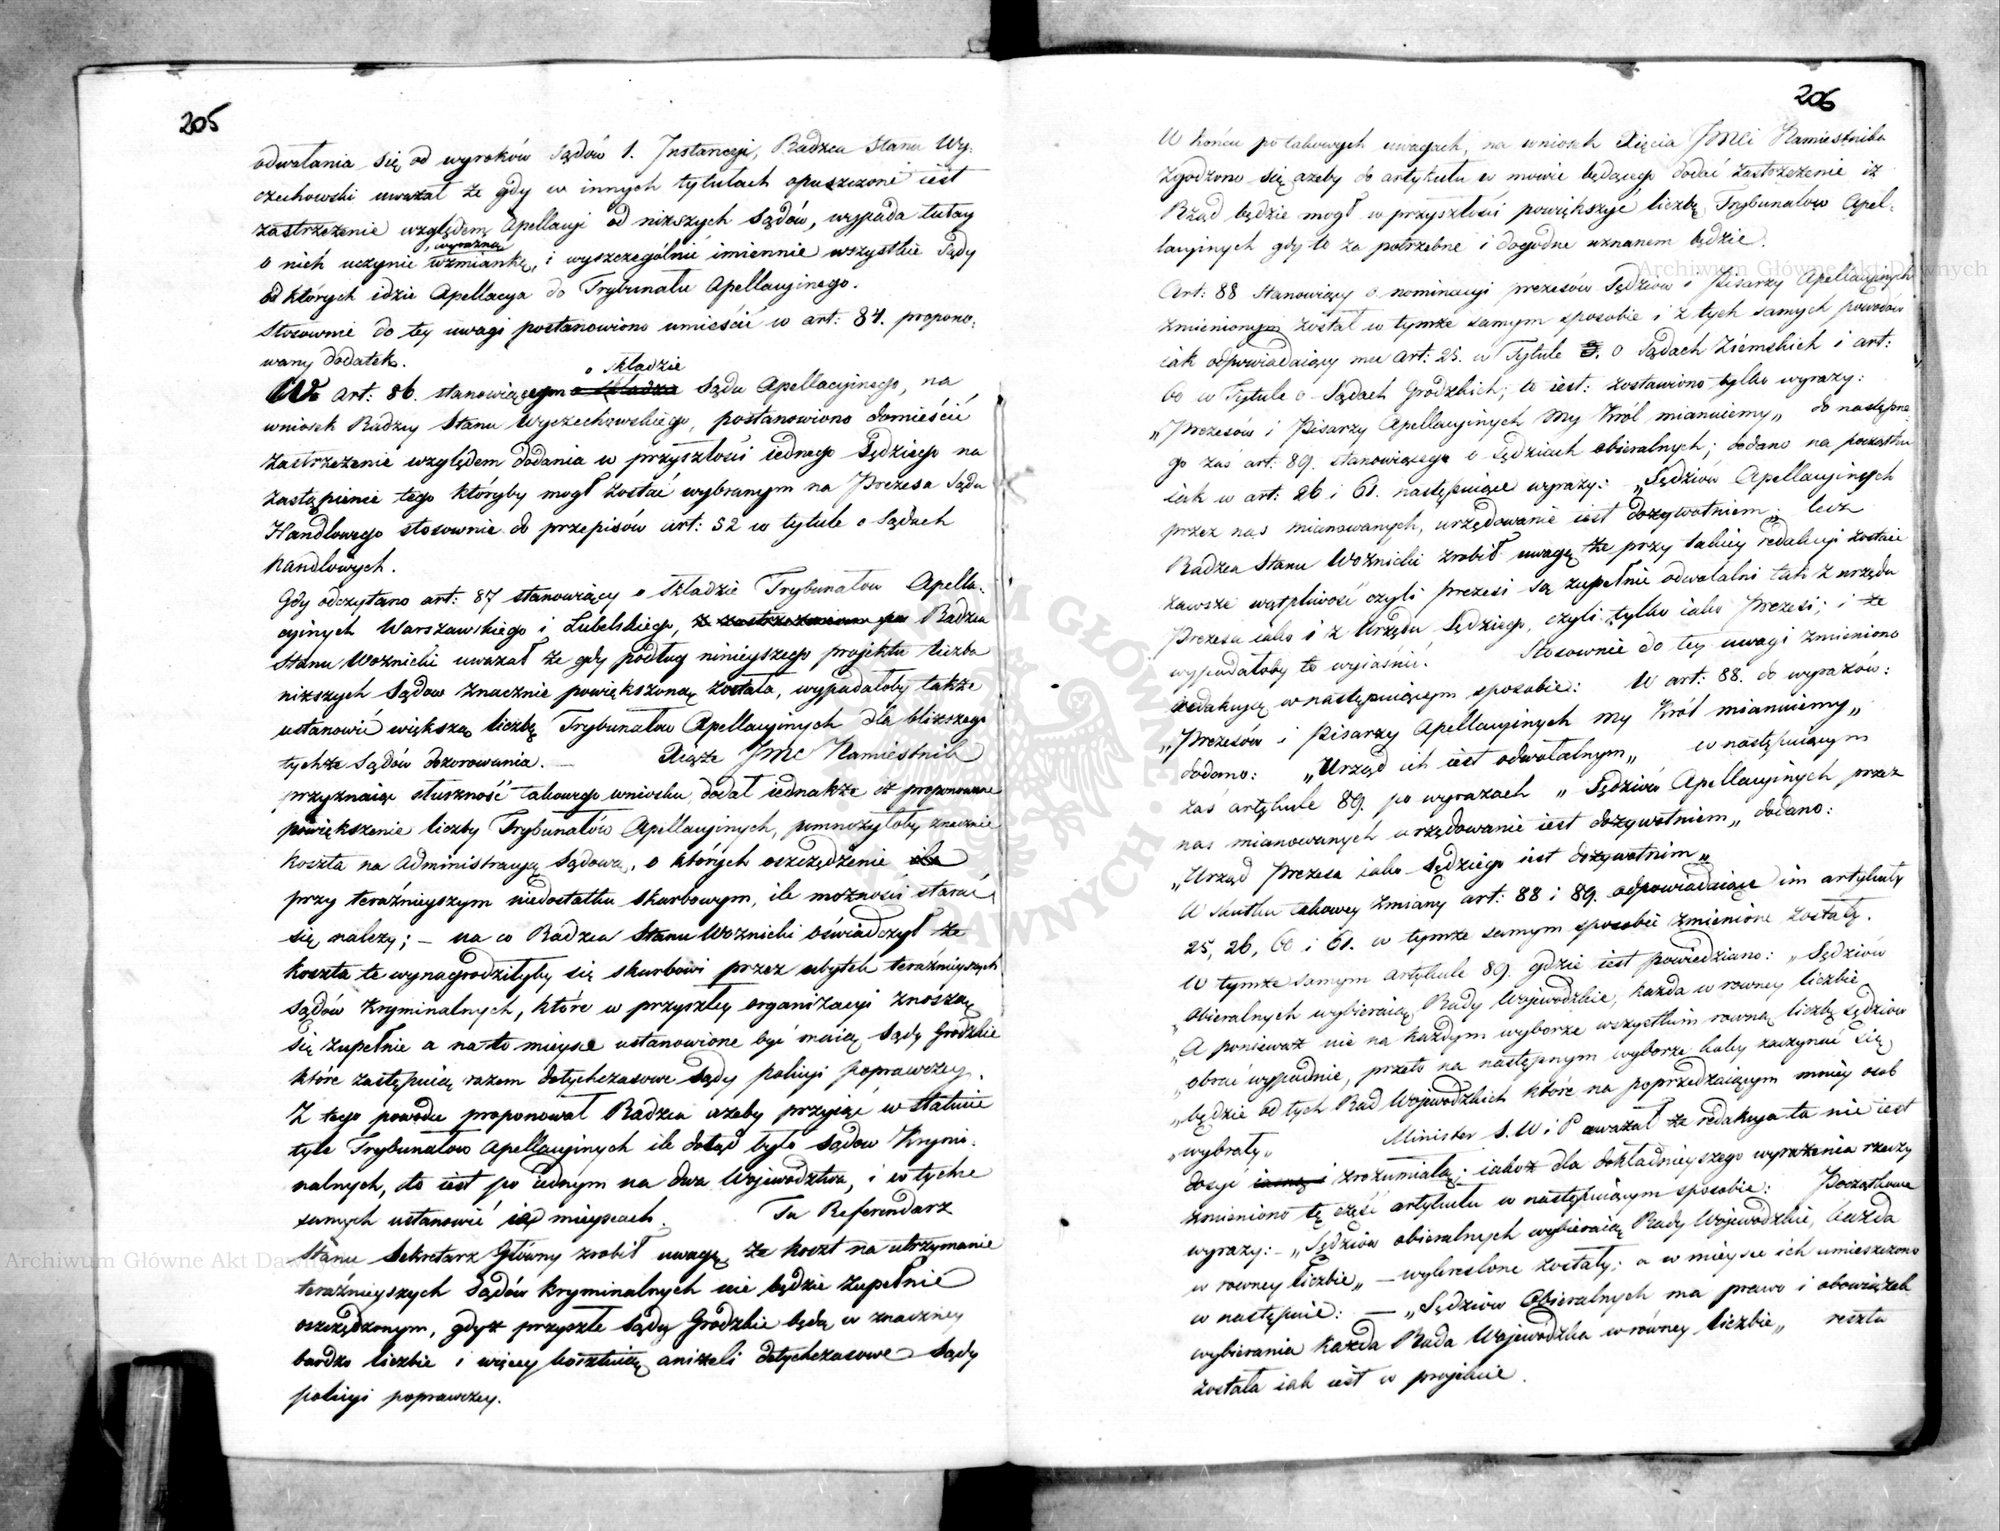 205
odwołania się od wyroków Sądów 1. Instancyi, Radzca Stanu Wy-
czechowski uważał że gdy w innych tytułach opuszczone iest
zastrzeżenie względem Apellacyi od niższych Sądów, wypada tutay
o nich uczynić wyraźną wzmiankę, i wyszczególnić imiennie wszystkie Sądy
od których idzie Apellacya do Trybunału Apellacyinego.
Stosownie do tey uwagi postanowiono umieścić w art: 84. propono-
wany dodatek.
art: 86. stanowiącym o składzie Sądu Apellacyinego, na
wniosek Radzcy Stanu Wyczechowskiego, postanowiono domieścić
zastrzeżenie względem dodania w przyszłości iednego Sędziego na
zastąpienie tego któryby mogł zostać wybranym na Prezesa Sądu
Handlowego stosownie do przepisów art: 52 w tytule o Sądach
handlowych.
Gdy odczytano art: 87 stanowiący o składzie Trybunałów Apella-
cyinych Warszawskiego i Lubelskiego, Radzca
Stanu Woznicki uważał że gdy podług ninieyszego projektu liczba
niższych Sądów znacznie powiększoną została, wypadałoby także
ustanowić większą liczbę Trybunałów Apellacyinych dla bliższego
tychże Sądów dozorowania. — Xiąże JMC Namiestnik
przyznaiąc słuszność takowego wniosku, dodał iednakże iż proponowane
powiększenie liczby Trybunałów Apellacyinych, pomnożyłoby znacznie
koszta na administracyą Sądową, o których oszczędzenie
przy teraźnieyszym niedostatku skarbowym, ile możności starać
się należy; – na co Radzca Stanu Woznicki oświadczył że
koszta te wynagrodziłyby się skarbowi przez ubytek teraźnieyszych
Sądów Kryminalnych, które w przyszłey organizacyi znoszą
się zupełnie a na to mieysce ustanowione być maią Sądy Grodzkie
które zastępuią razem dotychczasowe Sądy policyi poprawczey.
Z tego powodu proponował Radzca ażeby przyiąć w Statucie
tyle Trybunałów Apellacyinych ile dotąd było Sądów Krymi-
nalnych, to iest po iednym na dwa Województwa, i w tychże
samych ustanowić ie mieyscach. Tu Referendarz
Stanu Sekretarz Główny zrobił uwagę, że koszt na utrzymanie
teraźnieyszych Sądów kryminalnych nie będzie zupełnie
oszczędzonym, gdyż przyszłe Sądy Grodzkie będą w znaczney
bardzo liczbie i więcey kosztuią aniżeli dotychczasowe Sądy
policyi poprawczey.
206
W końcu po takowych uwagach, na wniosek Xięcia JMCi Namiestnika
zgodzono się ażeby do artykułu w mowie będącego dodać zastrzeżenie iż
Rząd będzie mogł w przyszłości powiększyć liczbę Trybunałów Apel-
lacyinych gdy to za potrzebne i dogodne uznanem będzie.
Art: 88 stanowiący o nominacyi prezesów Sędziów i Pisarzy Apellacyinych
zmienionym został w tymże samym sposobie i z tych samych powodów
iak odpowiadaiący mu art: 25. w Tytule 3. o Sądach Ziemskich i art:
60 w Tytule o Sądach Grodzkich; to iest: zostawiono tylko wyrazy:
„Prezesów i Pisarzy Apellacyinych My Król mianuiemy„ do następne
go zaś art: 89. stanowiącego o Sędziach obieralnych; dodano na początku
iak w art: 26 i 61. następuiące wyrazy: „Sędziów Apellacyinych
przez nas mianowanych, urzędowanie iest dożywotniem„ lecz
Radzca Stanu Woznicki zrobił uwagę że przy takiey redakcyi zostaie
zawsze wątpliwość czyli prezesi są zupełnie odwołalni tak z urzędu
Prezesa iako i z Urzędu Sędziego, czyli tylko iako Prezesi; i że
wypadałoby to wyiaśnić. Stosownie do tey uwagi zmieniono
redakcyą w następuiącym sposobie: W art: 88. do wyrazów:
„Prezesów i Pisarzy Apellacyinych My Król mianuiemy„
dodano: „Urząd ich iest odwołalnym„ w następuiącym
zaś artykule 89. po wyrazach „Sędziów Apellacyinych przez
nas mianowanych urzędowanie iest dożywotniem„ dodano:
„Urząd Prezesa iako Sędziego iest dożywotnim„
W skutku takowey zmiany art: 88 i 89. odpowiadaiące im artykuły
25, 26, 60 i 61. w tymże samym sposobie zmienione zostały.
W tymże samym artykule 89. gdzie iest powiedziano: „Sędziów
„obieralnych wybieraią Rady Wojewodzkie, każda w rowney liczbie
„A ponieważ nie na każdym wyborze wszystkim rowną liczbę Sędziów
„obrać wypadnie, przeto na następnym wyborze kaley zaczynać się
„będzie od tych Rad Wojewodzkich które na poprzedzaiącym mniey osob
„wybrały„ Minister S. W i P uważał że redakcya ta nie iest
dosyć iasną i zrozumiałą; iakoż dla dokładnieyszego wyrażenia rzeczy
zmieniono tę część artykułu w następuiącym sposobie: Początkowe
wyrazy: – „Sędziów obieralnych wybieraią Rady Wojewodzkie, każda
w rowney liczbie„ – wykreslone zostały; a w mieysce ich umieszczono
w następnie: – „Sędziów Obieralnych ma prawo i obowiązek
wybierania każda Rada Wojewodzka w równey liczbie„ reszta
została iak iest w projekcie.
Archiwum Główne Akt Dawnych
Archiwum Główne Akt Dawnych